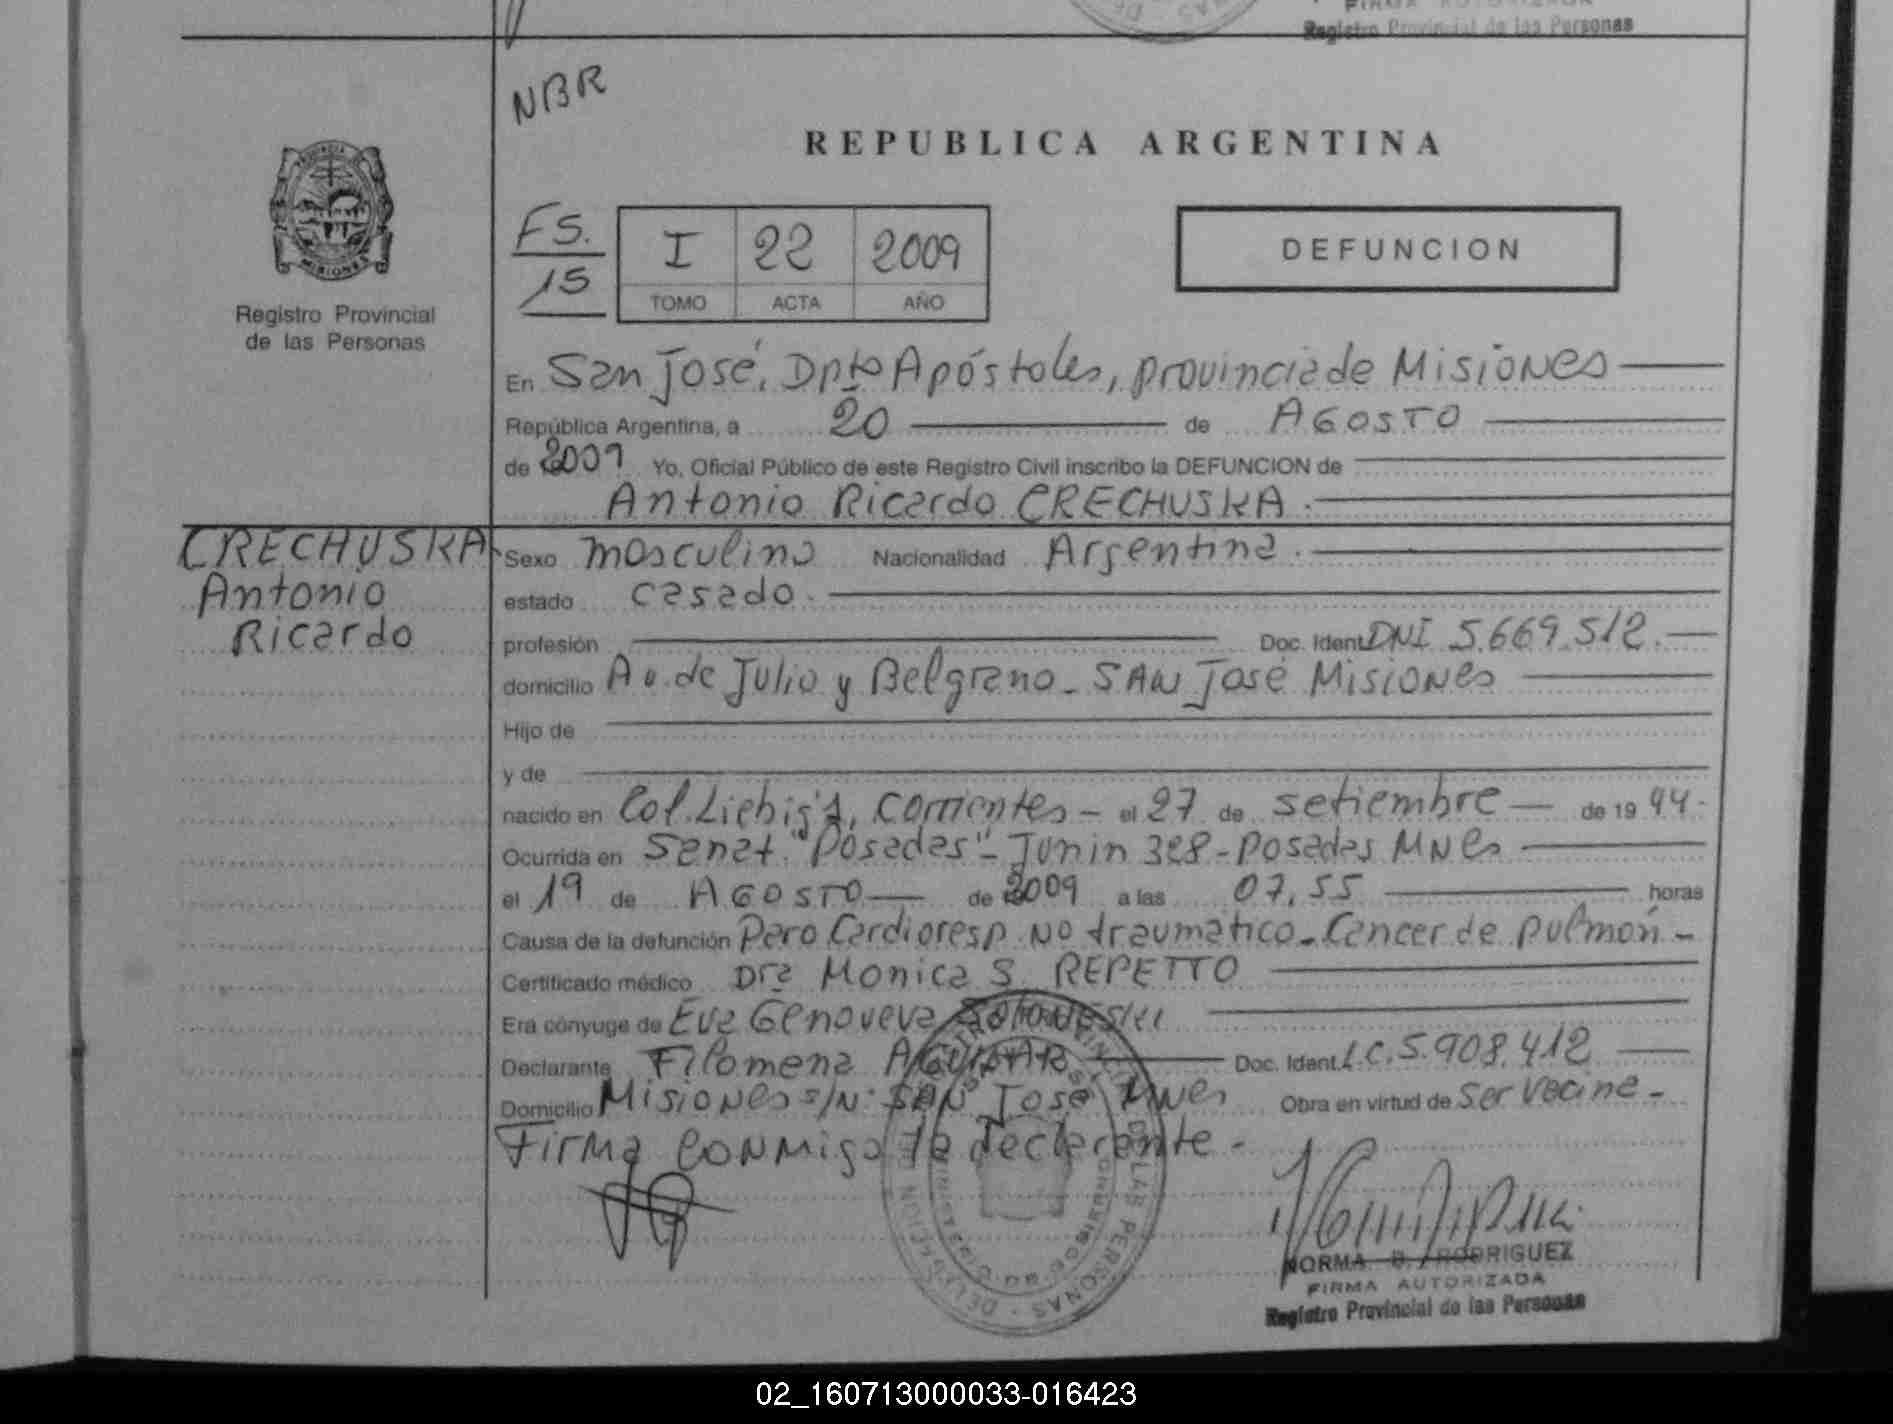 FIRMA AUTORIZADA
Registro Provincial de las Personas
NBR
REPUBLICA ARGENTINA
PROVINCIA DE
MISIONES
Registro Provincial
de las Personas
FS.
15
I 22 2009
TOMO ACTA AÑO
DEFUNCION
En San José, Dpto Apóstoles, provincia de Misiones
República Argentina, a 20 de AGOSTO
de 2009 Yo, Oficial Público de este Registro Civil inscribo la DEFUNCION de
Antonio Ricardo CRECHUSKA.
CRECHUSKA
Antonio
Ricardo
Sexo masculino Nacionalidad Argentina.
estado casado.
profesión Doc. Ident. DNI 5.669.512.
domicilio Av. de Julio y Belgrano - SAN José Misiones
Hijo de
y de
nacido en Col. Liebig's, Corrientes - el 27 de setiembre de 19 44.
Ocurrida en Sanat. "Posadas" - Junin 328 - Posadas Mnes
el 19 de AGOSTO de 2009 a las 07,55 horas
Causa de la defunción Paro Cardioresp. No traumático - Cancer de pulmón -
Certificado médico Dra Monica S. REPETTO
Era cónyuge de Eva Genoveva
Declarante Filomena AGUIAR Doc. Ident. L.C. 5.908.412
Domicilio Misiones s/N. SAN José Mnes Obra en virtud de ser vecina -
Firma conmigo la declarante -
NORMA B. RODRIGUEZ
FIRMA AUTORIZADA
Registro Provincial de las Personas
02_160713000033-016423